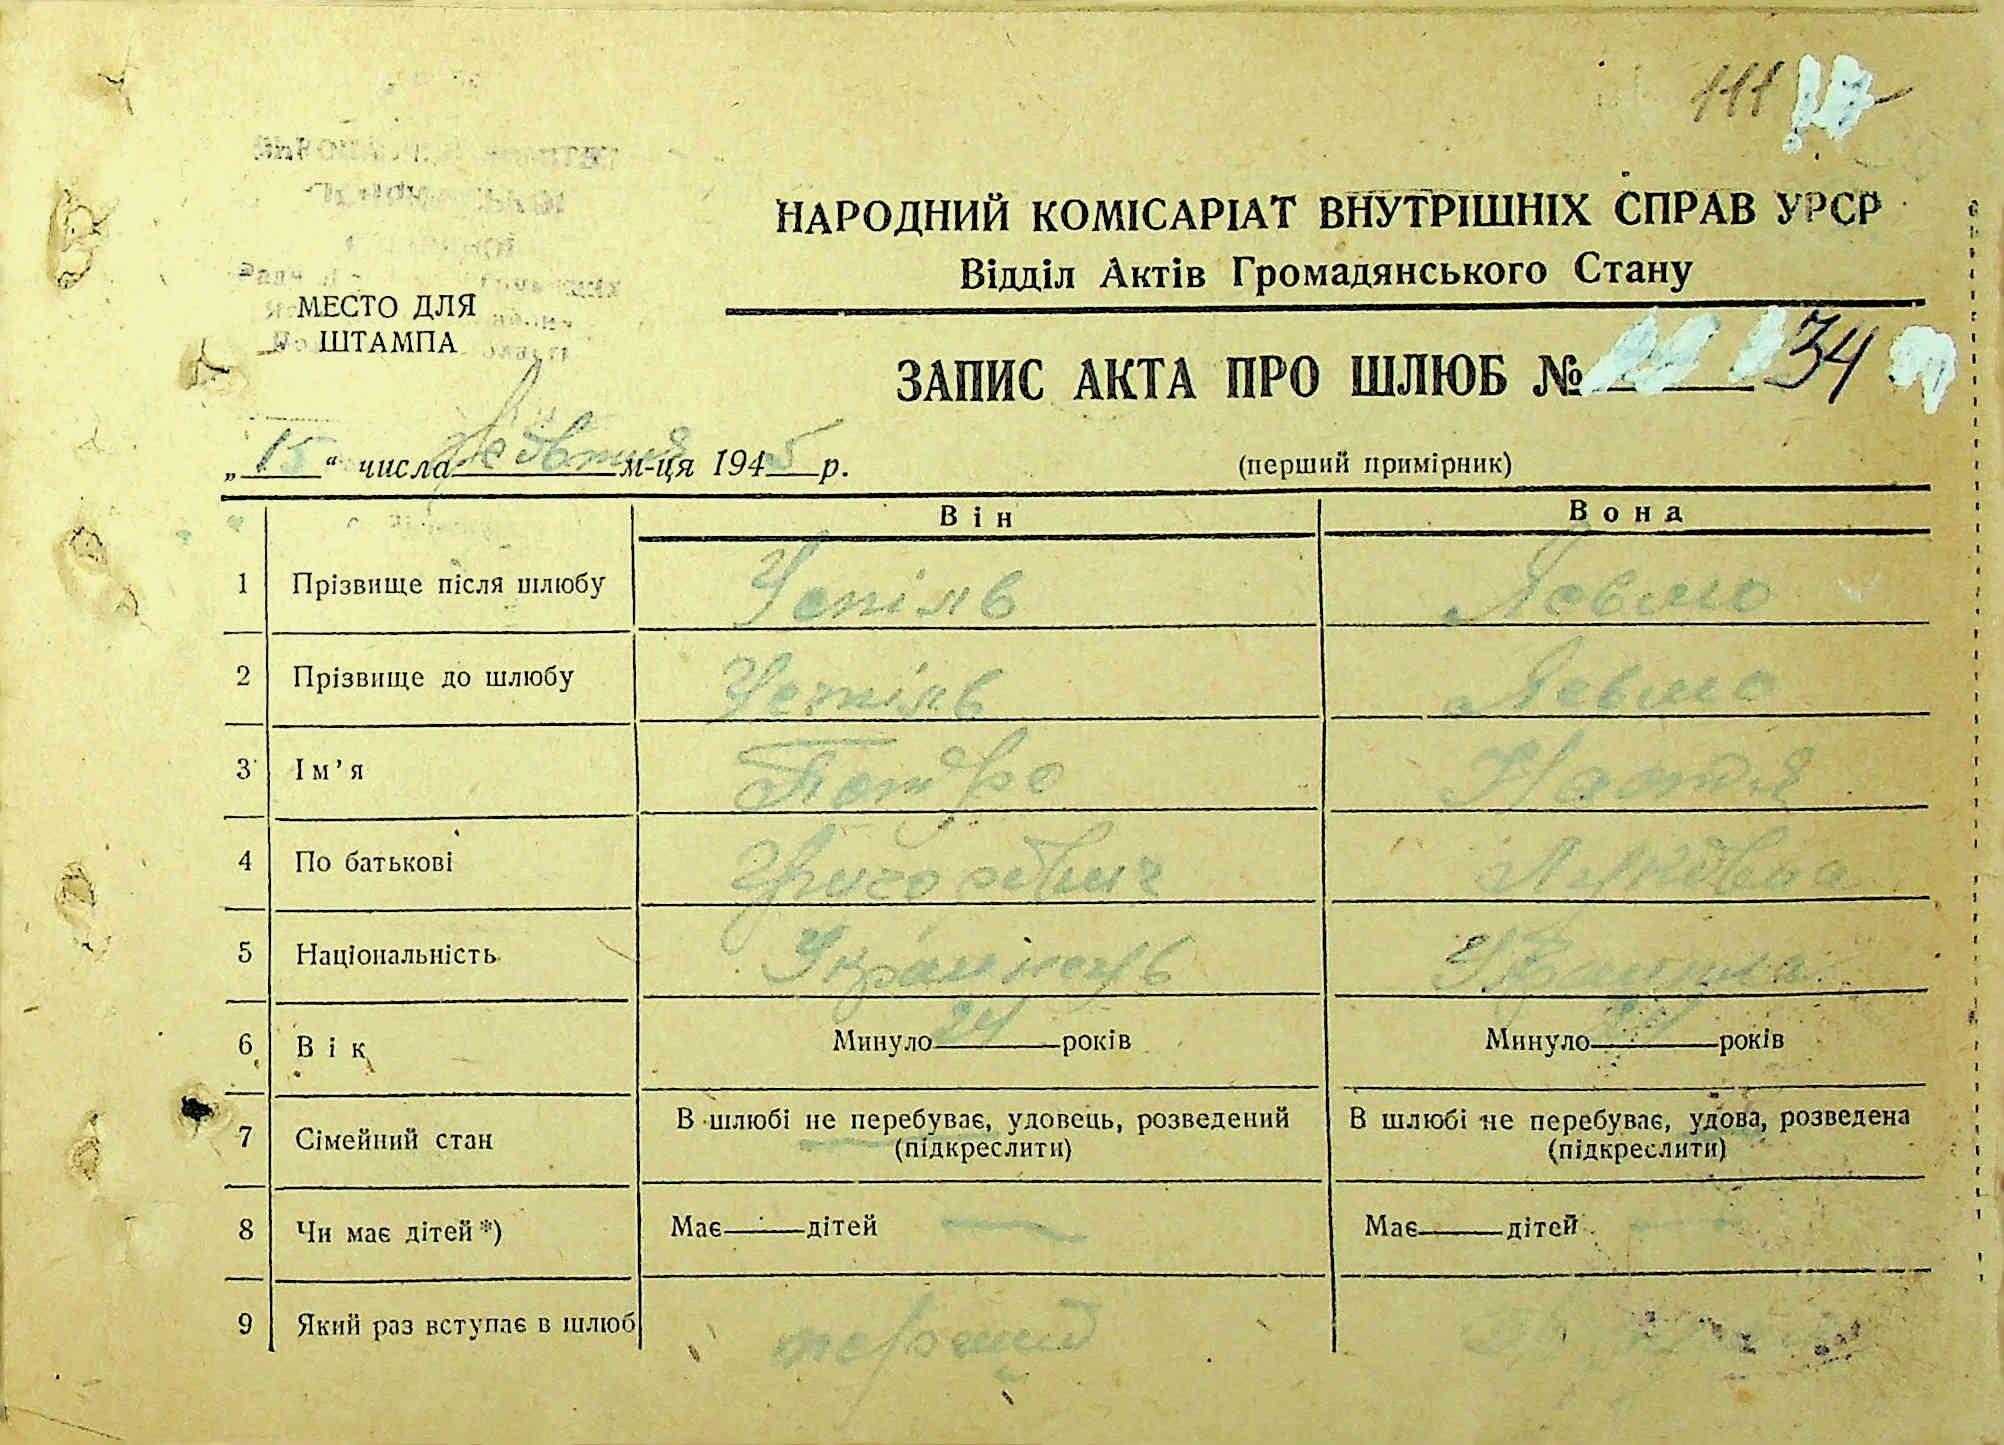 111
НАРОДНИЙ КОМІСАРІАТ ВНУТРІШНІХ СПРАВ УРСР
Відділ Актів Громадянського Стану
МЕСТО ДЛЯ
ШТАМПА
ЗАПИС АКТА ПРО ШЛЮБ № 34
„15“ числа жовтня м-ця 1945 р.
(перший примірник)
Він Вона
1 Прізвище після шлюбу
2 Прізвище до шлюбу
3 Ім'я Петро Настя
4 По батькові Григорович
5 Національність Українець Українка
6 Вік Минуло 24 років Минуло років
7 Сімейний стан В шлюбі не перебуває, удовець, розведений (підкреслити) В шлюбі не перебуває, удова, розведена (підкреслити)
8 Чи має дітей*) Має — дітей — Має — дітей —
9 Який раз вступає в шлюб перший